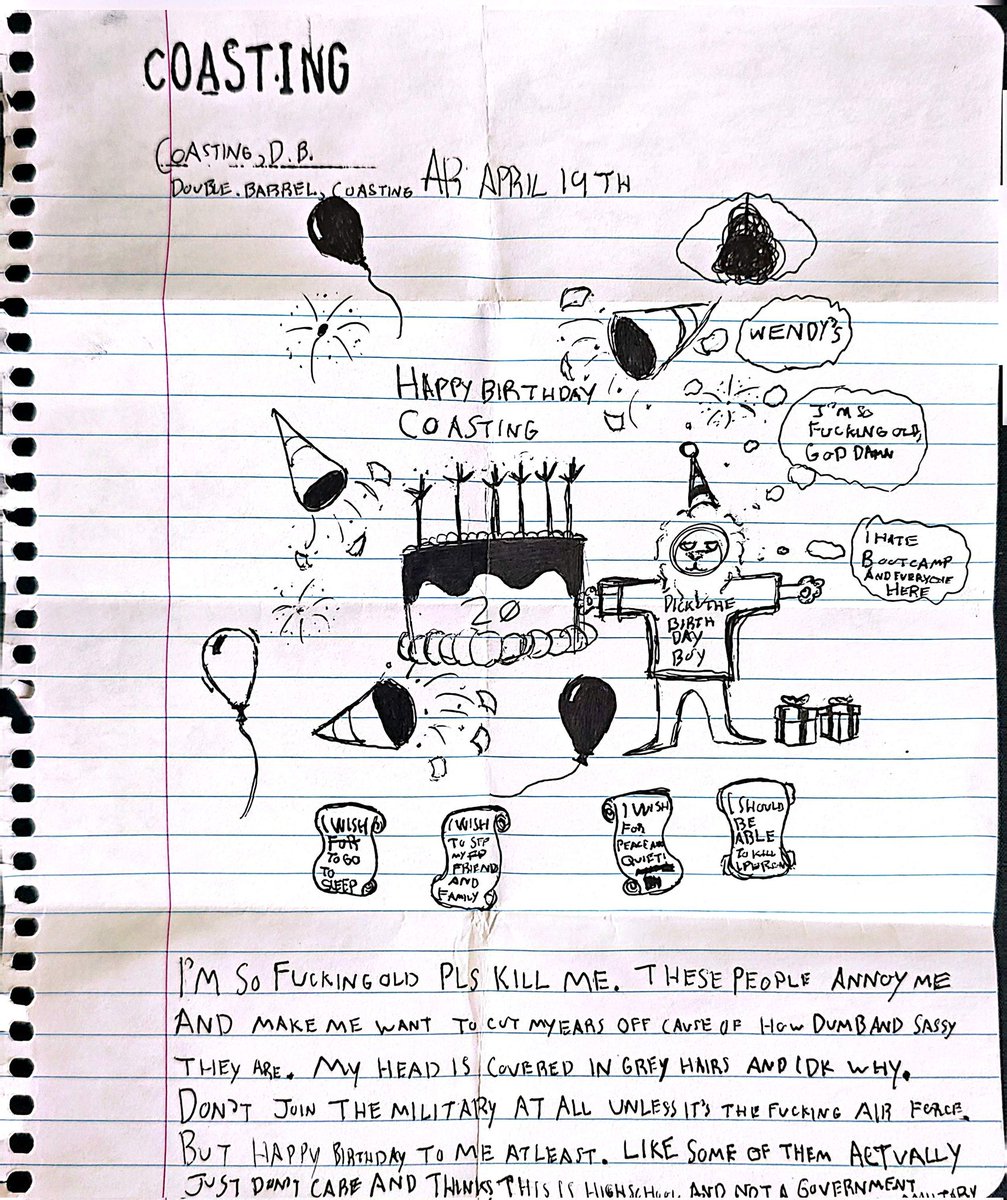 COASTING
COASTING, D.B.
DOUBLE. BARREL, COASTING
AR APRIL 19TH
WENDY'S
HAPPY BIRTHDAY
COASTING
I'M SO
FUCKING OLD,
GOD DAMN
I HATE
BOOTCAMP
AND EVERYONE
HERE
20
DICK THE
BIRTH
DAY
BOY
I WISH
FOR
TO GO
TO
SLEEP
I WISH
TO SEE
MY
FRIEND
AND
FAMILY
I WISH
FOR
PEACE AND
QUIET!
I SHOULD
BE
ABLE
TO KILL
1 PERSON
I'M SO FUCKING OLD PLS KILL ME. THESE PEOPLE ANNOY ME
AND MAKE ME WANT TO CUT MY EARS OFF CAUSE OF HOW DUMB AND SASSY
THEY ARE. MY HEAD IS COVERED IN GREY HAIRS AND IDK WHY.
DON'T JOIN THE MILITARY AT ALL UNLESS IT'S THE FUCKING AIR FORCE.
BUT HAPPY BIRTHDAY TO ME ATLEAST. LIKE SOME OF THEM ACTUALLY
JUST DON'T CARE AND THINKS THIS IS HIGHSCHOOL AND NOT A GOVERNMENT